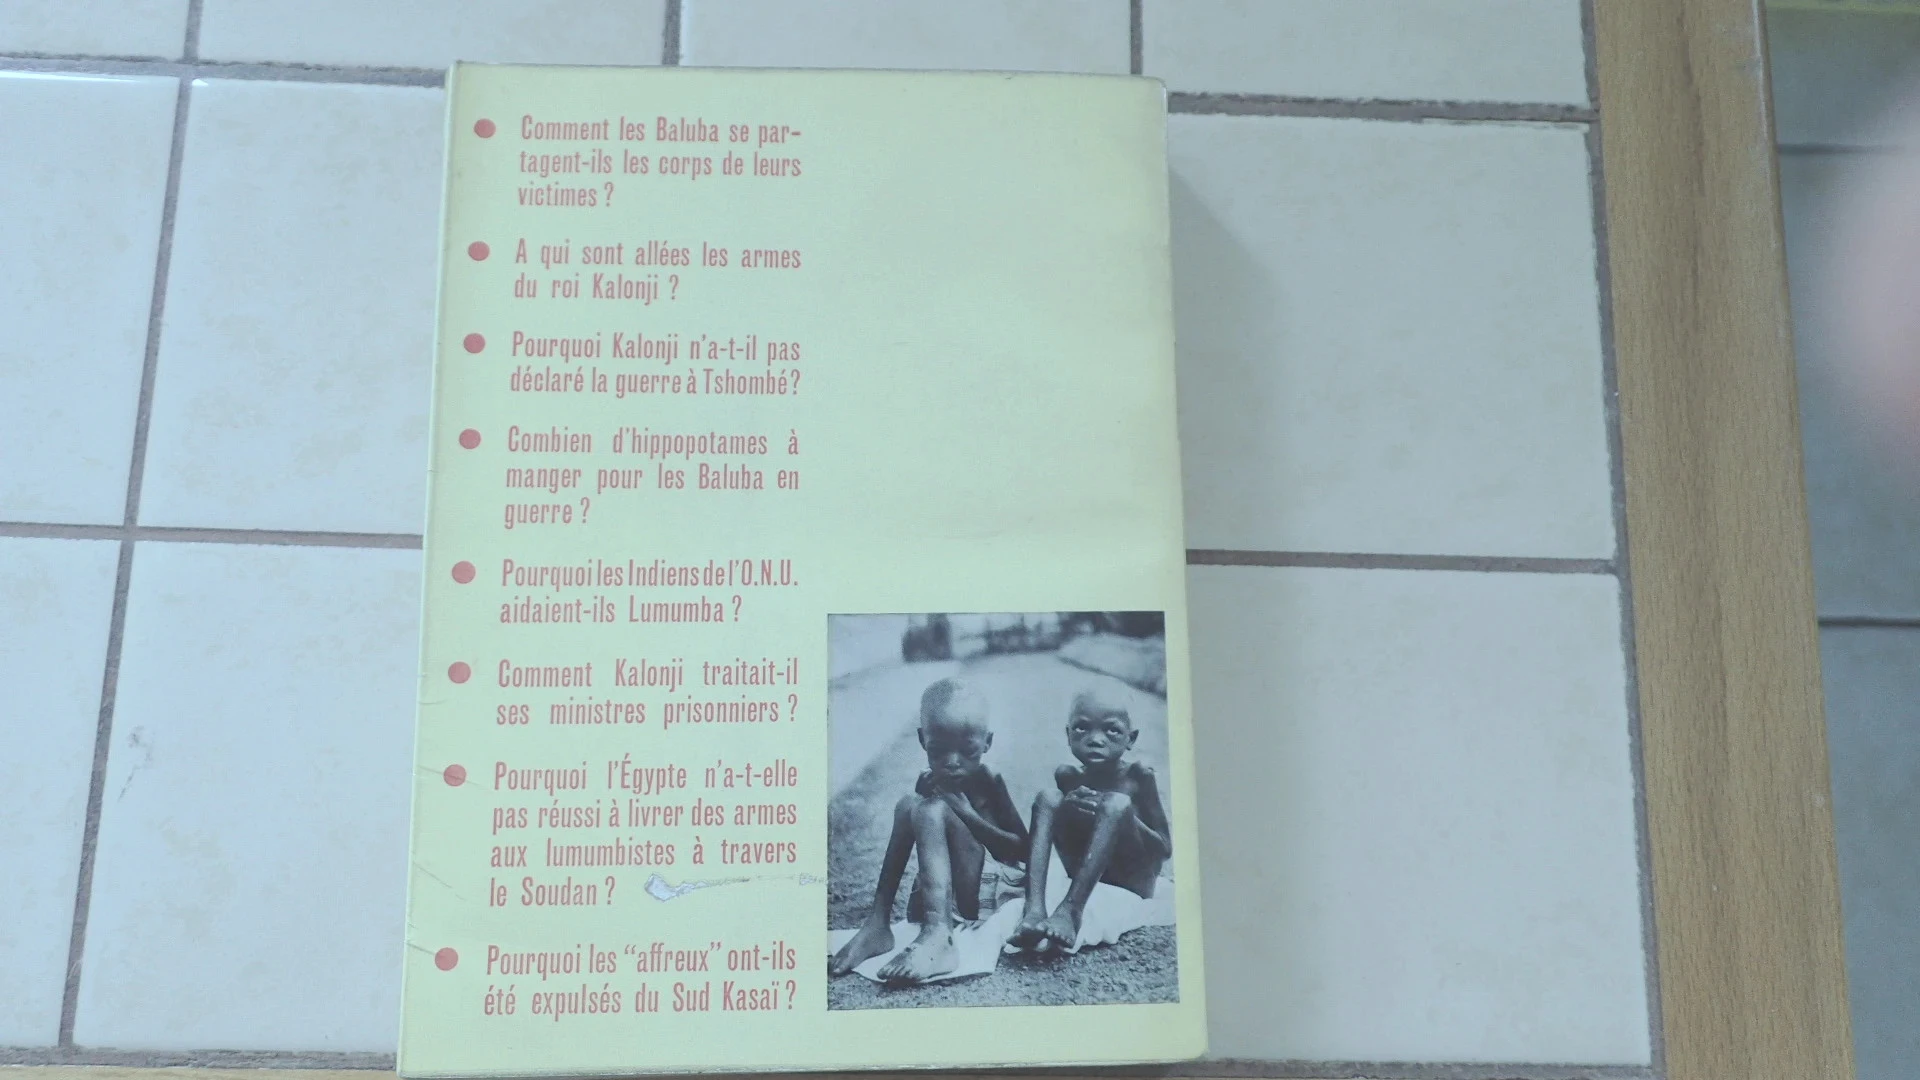 Comment les Baluba se par-
tagent-ils les corps de leurs
victimes ?
A qui sont allées les armes
du roi Kalonji ?
Pourquoi Kalonji n'a-t-il pas
déclaré la guerre à Tshombé ?
Combien d'hippopotames à
manger pour les Baluba en
guerre ?
Pourquoi les Indiens de l'O.N.U.
aidaient-ils Lumumba ?
Comment Kalonji traitait-il
ses ministres prisonniers ?
Pourquoi l'Égypte n'a-t-elle
pas réussi à livrer des armes
aux lumumbistes à travers
le Soudan ?
Pourquoi les “affreux” ont-ils
été expulsés du Sud Kasaï ?